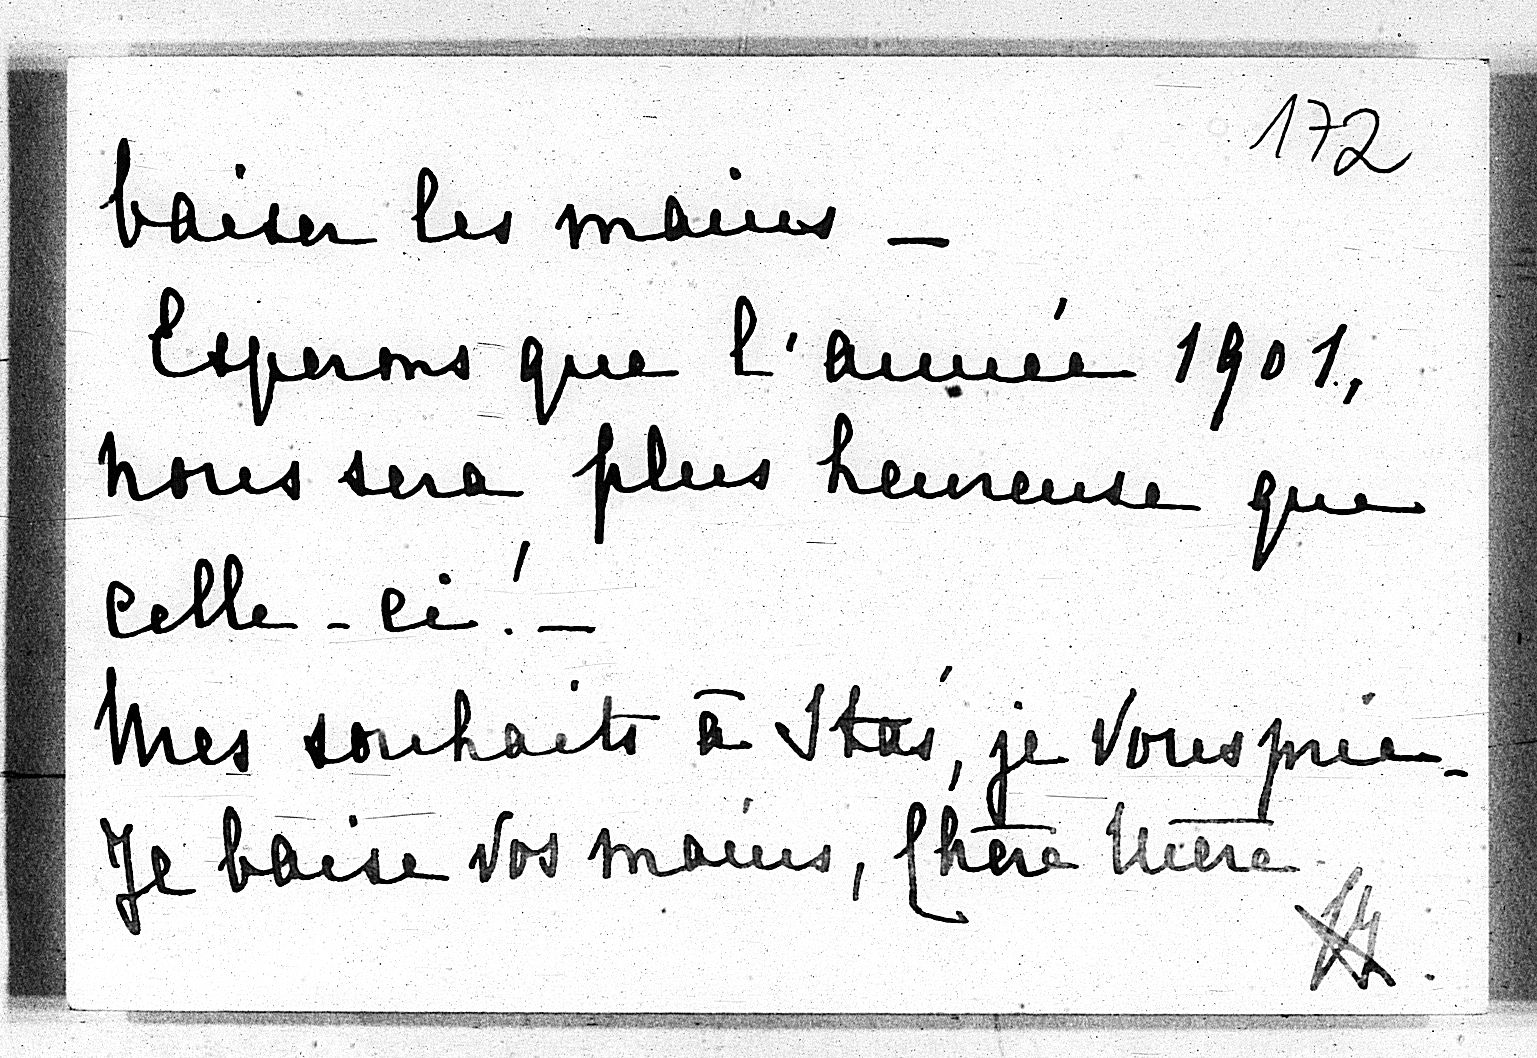 172
baiser les mains —
Esperons que l'année 1901.,
nous sera plus heureuse que
celle-ci! —
Mes souhaits à Staś, je vous prie -
Je baise vos mains, Chère Mère